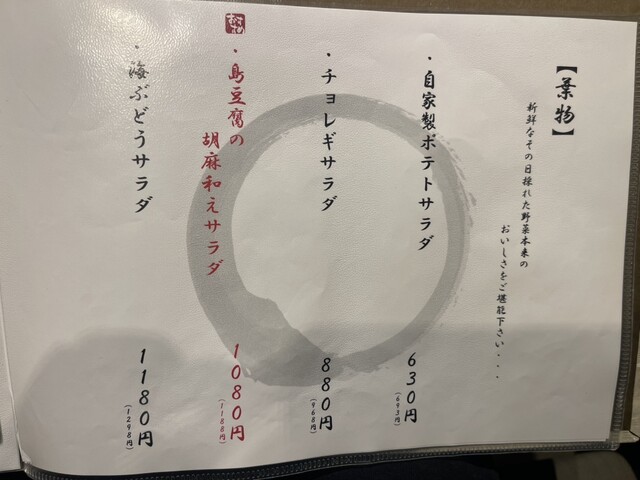 【葉物】
新鮮なその日採れた野菜本来の
おいしさをご堪能下さい・・・
・自家製ポテトサラダ
630円
(693円)
・チョレギサラダ
880円
(968円)
おすすめ
・島豆腐の
胡麻和えサラダ
1080円
(1188円)
・海ぶどうサラダ
1180円
(1298円)